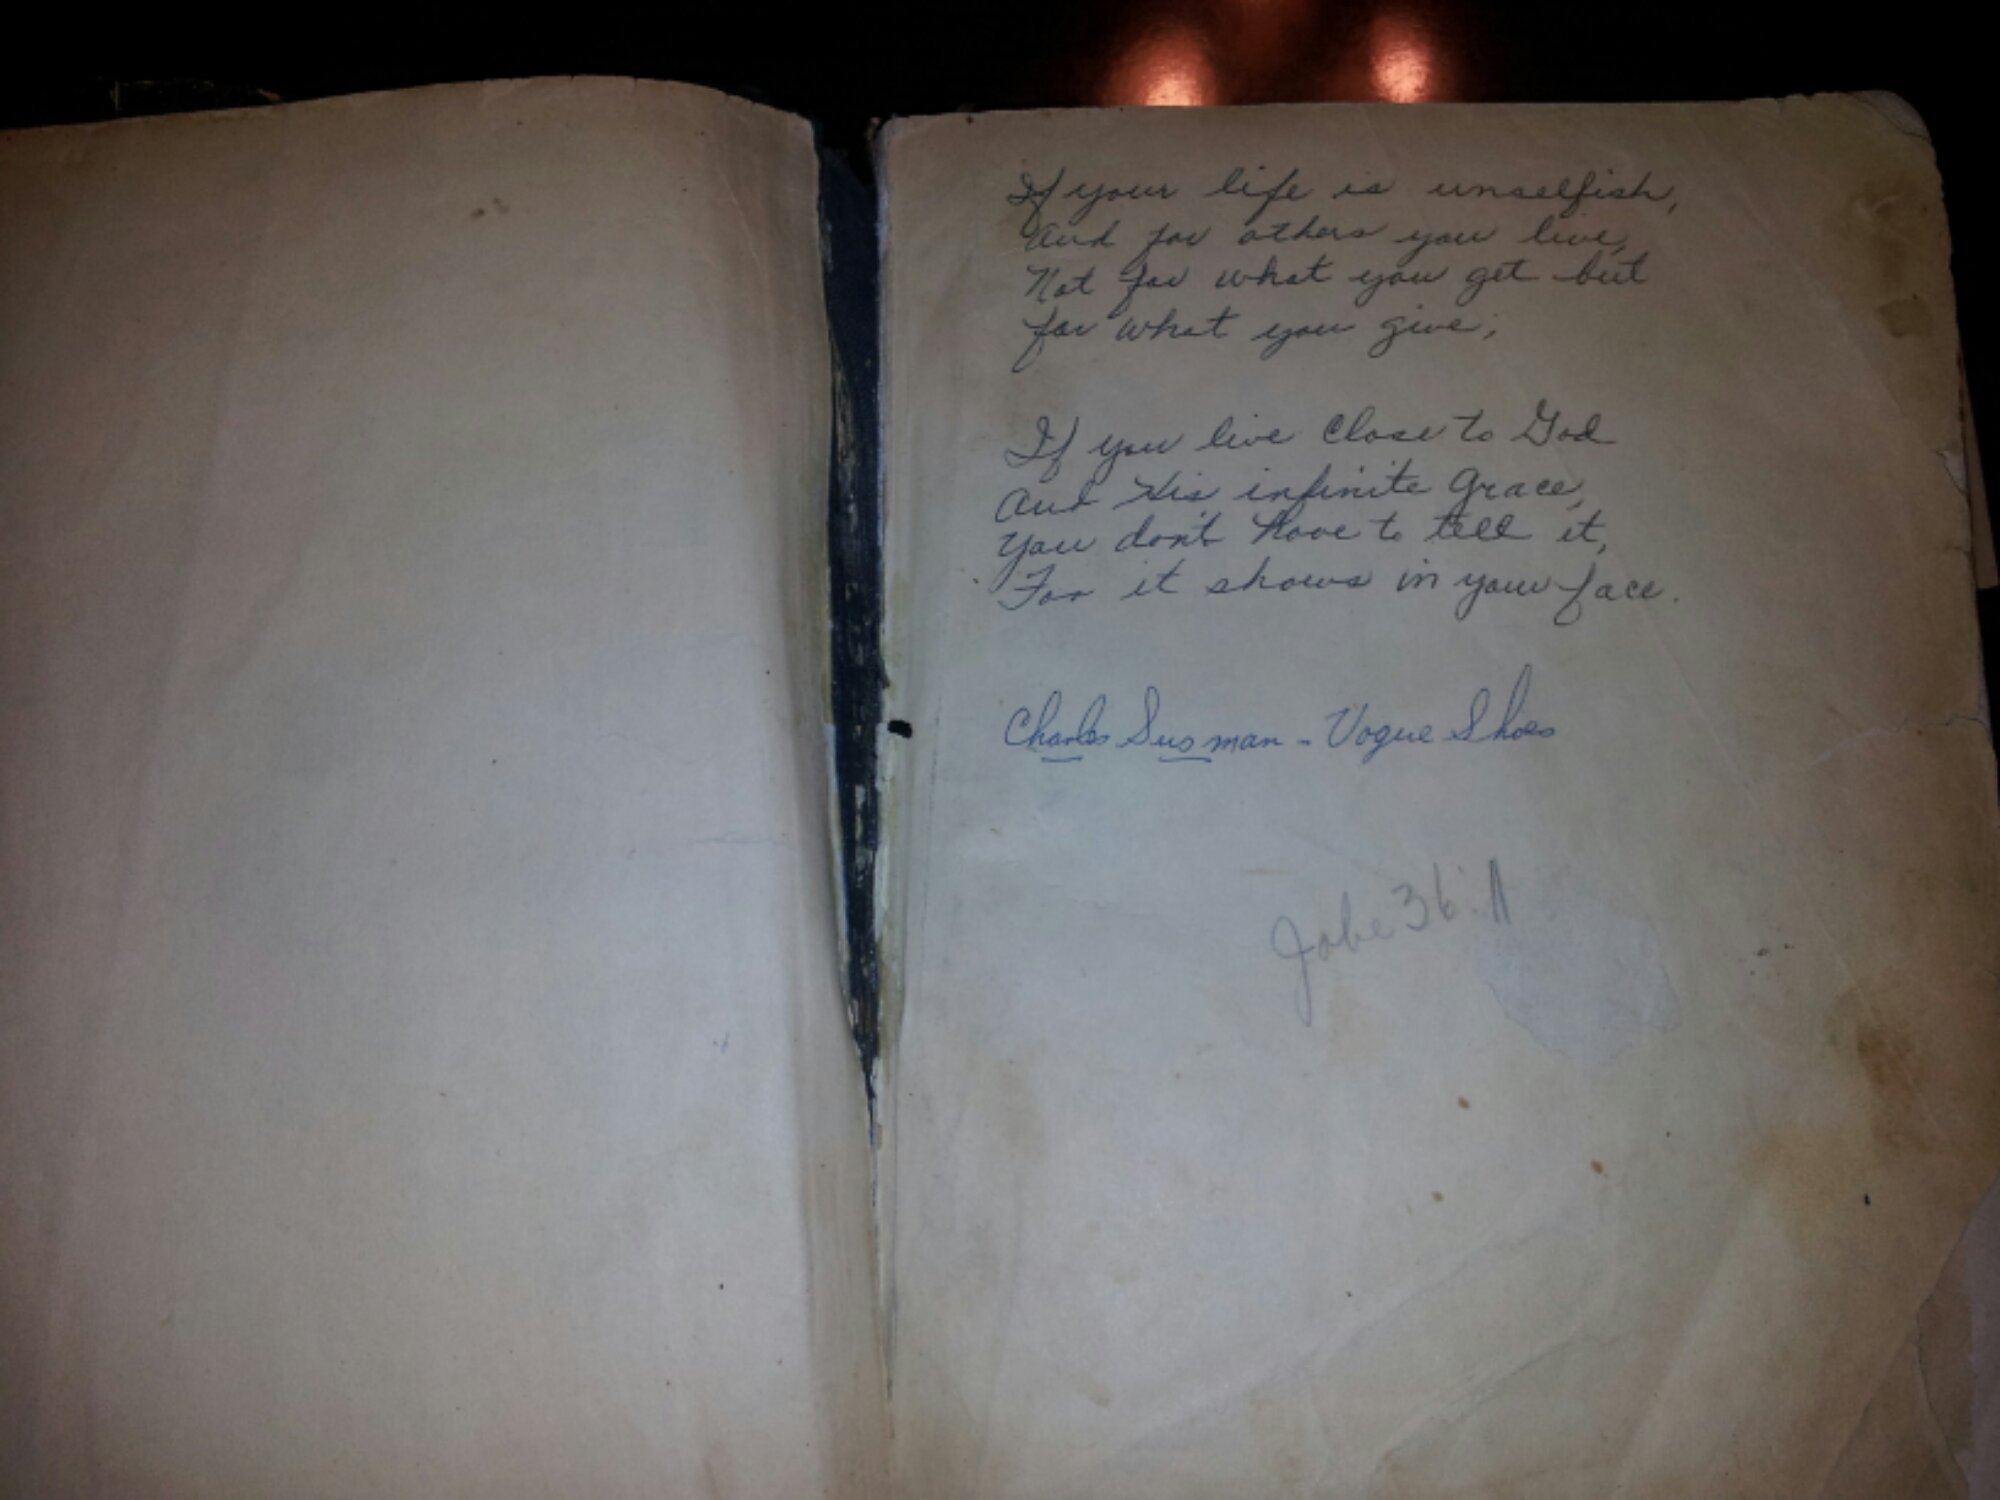 If your life is unselfish,
And for others you live,
Not for what you get but
for what you give;
If you live close to God
And His infinite Grace,
You don't have to tell it,
For it shows in your face.
Charles Susman - Vogue Shoes
Jobe 36:11